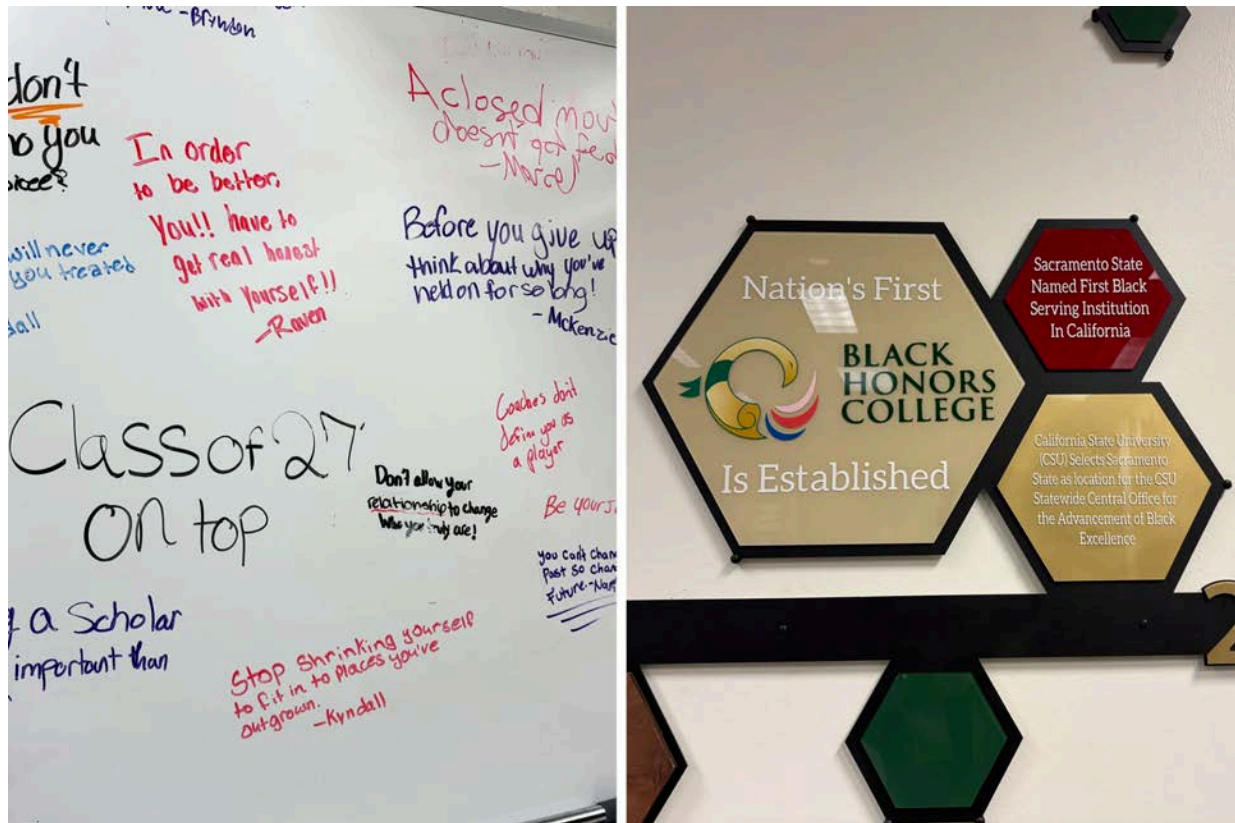 -Brynden
don't
you
will never
you treated
In order
to be better,
You!! have to
get real honest
with yourself!!
-Raven
A closed
doesn't get fed
-Marcel
Before you give up
think about why you've
held on for so long!
- McKenzie
Class of 27
on top
Don't allow your
relationship to change
who you truly are!
Coaches don't
define you as
a player
Be
you can't
Past so
Future-
a Scholar
important than
Stop shrinking yourself
to fit in to places you've
outgrown.
-Kyndall
Nation's First
BLACK
HONORS
COLLEGE
Is Established
Sacramento State
Named First Black
Serving Institution
In California
California State University
(CSU) Selects Sacramento
State as location for the CSU
Statewide Central Office for
the Advancement of Black
Excellence
2